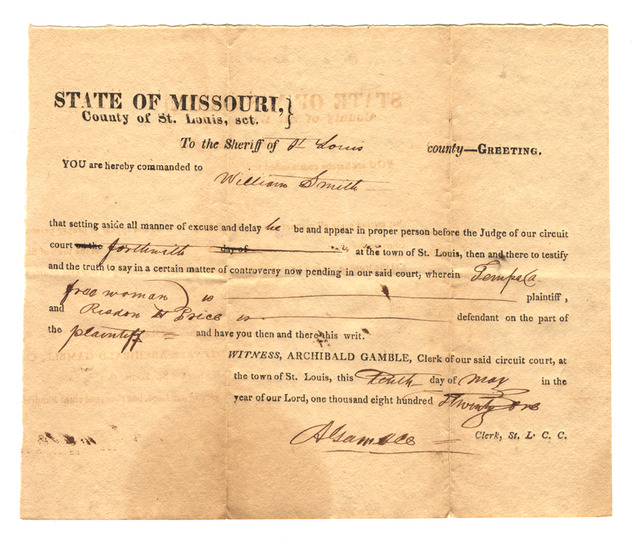 STATE OF MISSOURI,}
County of St. Louis, sct.
To the Sheriff of St Louis county—GREETING.
YOU are hereby commanded to
William Smith
that setting aside all manner of excuse and delay he be and appear in proper person before the Judge of our circuit
court on the forthwith day of at the town of St. Louis, then and there to testify
and the truth to say in a certain matter of controversy now pending in our said court, wherein Tempe (a
free woman) is plaintiff,
and Risdon H Price is defendant on the part of
the plaintiff and have you then and there this writ.
WITNESS, ARCHIBALD GAMBLE, Clerk of our said circuit court, at
the town of St. Louis, this Tenth day of May in the
year of our Lord, one thousand eight hundred & twenty one
A Gamble Clerk, St. L. C. C.